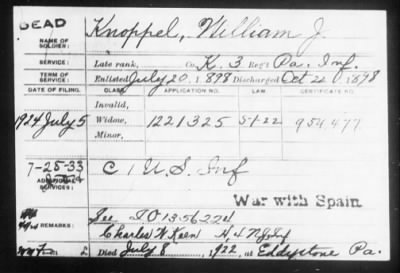 DEAD
NAME OF SOLDIER: Knoppel, William J.
SERVICE: Late rank, Co. K. 3 Reg't Pa. Inf.
TERM OF SERVICE: Enlisted July 20, 1898 Discharged Oct 22 1898
DATE OF FILING. CLASS. APPLICATION NO. LAW. CERTIFICATE NO.
Invalid,
1924 July 5 Widow, 1221325 954477
Minor,
7-25-33
ADDITIONAL SERVICES: C 1 U.S. Inf
War with Spain
REMARKS: See
Charles W. Keen
Died July 8, 1922, at Eddystone Pa.